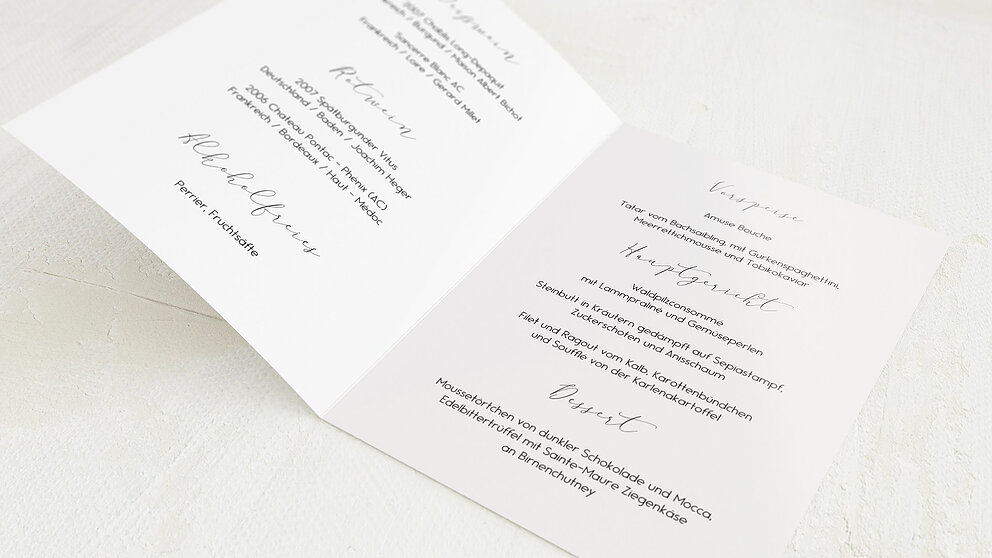 Weißwein
2007 Chablis Long-Depaquit
Frankreich / Burgund / Maison Albert Bichot
Sancerre Blanc AC
Frankreich / Loire / Gerard Millet
Rotwein
2007 Spätburgunder Vitus
Deutschland / Baden / Joachim Heger
2006 Chateau Pontac - Phénix (AC)
Frankreich / Bordeaux / Haut - Médoc
Alkoholfreies
Perrier, Fruchtsäfte
Vorspeise
Amuse Bouche
Tatar vom Bachsaibling, mit Gurkenspaghettini,
Meerrettichmousse und Tobikokaviar
Hauptgericht
Waldpilzconsommé
mit Lammpraliné und Gemüseperlen
Steinbutt in Kräutern gedämpft auf Sepiastampf,
Zuckerschoten und Anisschaum
Filet und Ragout vom Kalb, Karottenbündchen
und Souffle von der Karlenakartoffel
Dessert
Moussetörtchen von dunkler Schokolade und Mocca,
Edelbittertrüffel mit Sainte-Maure Ziegenkäse
an Birnenchutney